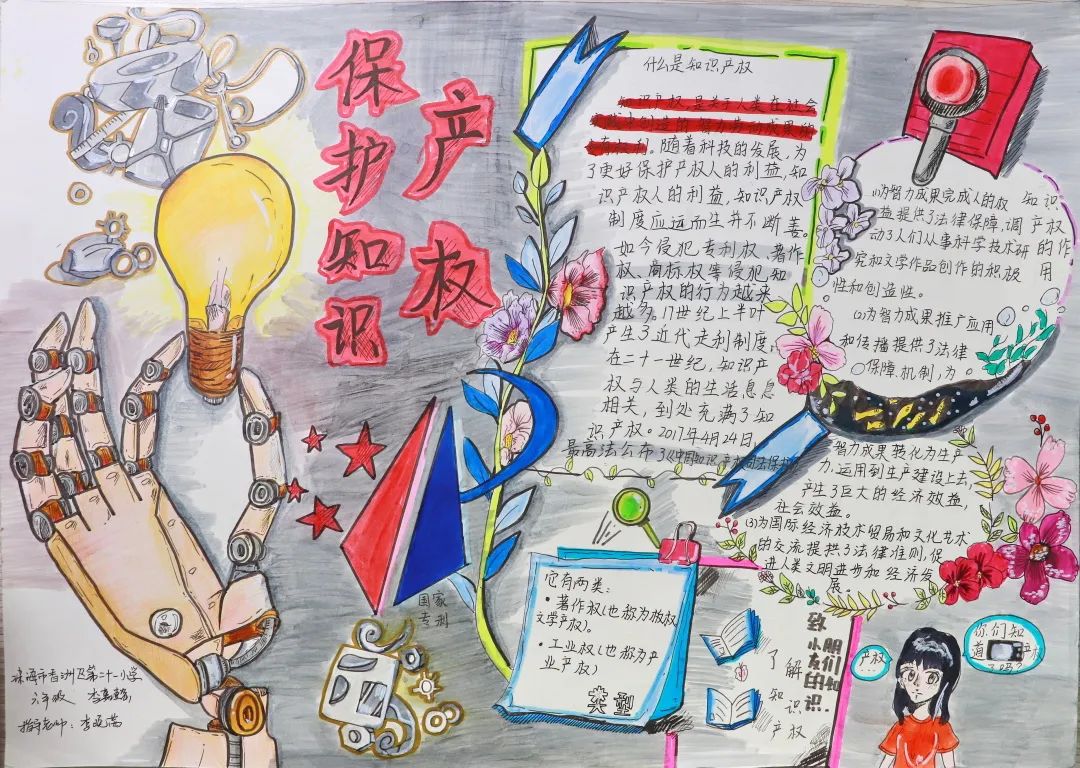 保护知识
产权
什么是知识产权
知识产权,是关于人类在社会
实践中创造的智力劳动成果的
专有权利。随着科技的发展,为
了更好保护产权人的利益,知
识产权人的利益,知识产权
制度应运而生并不断善。
如今侵犯专利权、著作
权、商标权等侵犯知
识产权的行为越来
越多。17世纪上半叶
产生了近代走利制度;
在二十一世纪,知识产
权与人类的生活息息
相关,到处充满了知
识产权。2017年4月24日,
最高法公布了《中国知识产权司法保护
知识
产权
的作
用
(1)为智力成果完成人的权
益提供了法律保障,调
动了人们从事科学技术研
究和文学作品创作的积极
性和创造性。
(2)为智力成果推广应用
和传播提供了法律
保障机制,为
智力成果转化为生产
力,运用到生产建设上去,
产生了巨大的经济效益,
社会效益。
(3)为国际经济技术贸易和文化艺术
的交流提供了法律准则,促
进人类文明进步和经济发
展。
国家
专利
它有两类:
•著作权(也称为版权
文学产权)。
•工业权(也称为产
业产权)
类型
致
小朋
友们
的知
识.
了解
知识
产权
产权
你们知
道
产权
了吗?
珠海市香洲区第二十一小学
六年级
指导老师:李